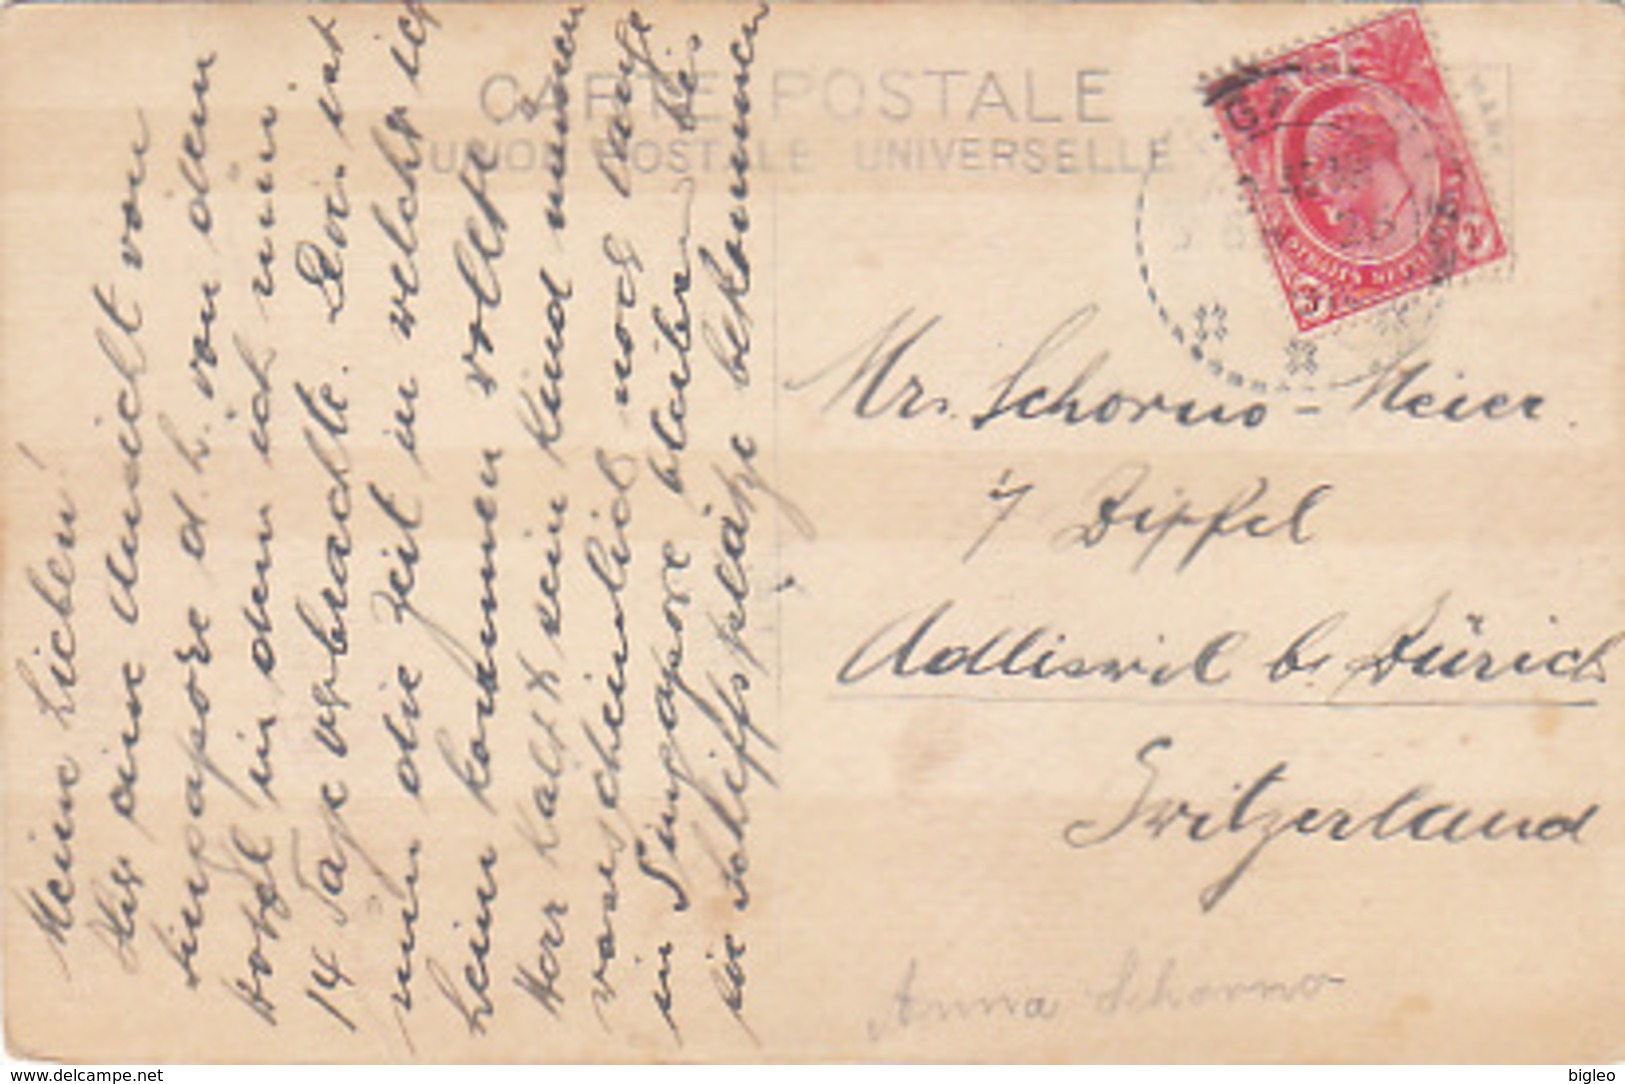 CARTE POSTALE
UNION POSTALE UNIVERSELLE
Meine Lieben!
Hier eine Ansicht von
Singapore d. h. von dem
Hotel in dem ich nun
14 Tage verbrachte. Dies ist
nun die Zeit in welcher ich
heim kommen wollte
Herr Kalt & sein Kind müssen
warscheinlich noch lange
in Singapore bleiben bis
sie Schiffsplätze bekommen
Mrs. Schorno-Meier
Adliswil b. Zürich
Switzerland
Anna Schorno
www.delcampe.net
bigleo